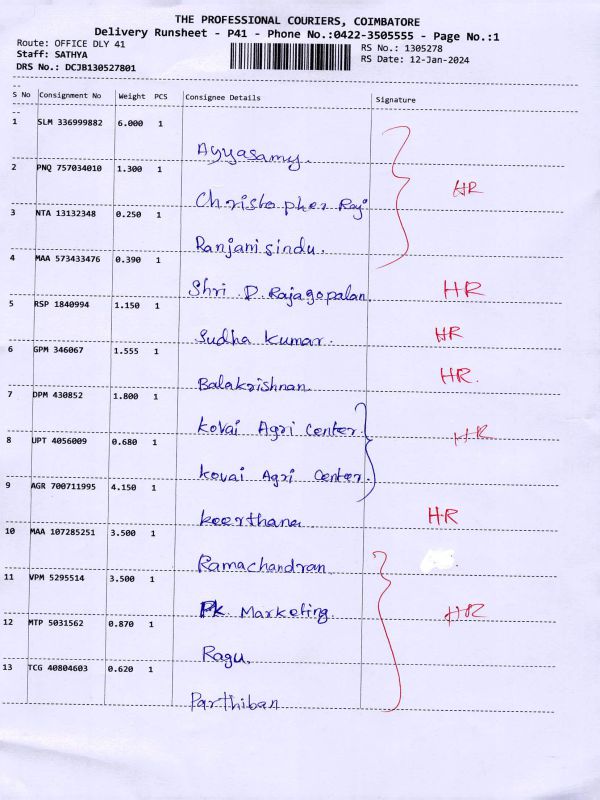 THE PROFESSIONAL COURIERS, COIMBATORE
Delivery Runsheet - P41 - Phone No.:0422-3505555 - Page No.:1
Route: OFFICE DLY 41
RS No.: 1305278
Staff: SATHYA
RS Date: 12-Jan-2024
DRS No.: DCJB130527801
S No Consignment No Weight PCS Consignee Details Signature
1 SLM 336999882 6.000 1
Ayyasamy.
2 PNQ 757034010 1.300 1
HR
Christopher Raj
3 NTA 13132348 0.250 1
Ranjani sindu.
4 MAA 573433476 0.390 1
Shri D. Rajagopalan. HR
5 RSP 1840994 1.150 1
Sudha Kumar. HR
6 GPM 346067 1.555 1
Balakrishnan. HR.
7 DPM 430852 1.800 1
Kovai Agri Center. HR
8 UPT 4056009 0.680 1
Kovai Agri Center.
9 AGR 700711995 4.150 1
Keerthana HR
10 MAA 107285251 3.500 1
Ramachandran.
11 VPM 5295514 3.500 1
PK. Marketing. HR
12 MTP 5031562 0.870 1
Ragu.
13 TCG 40804603 0.620 1
Parthiban